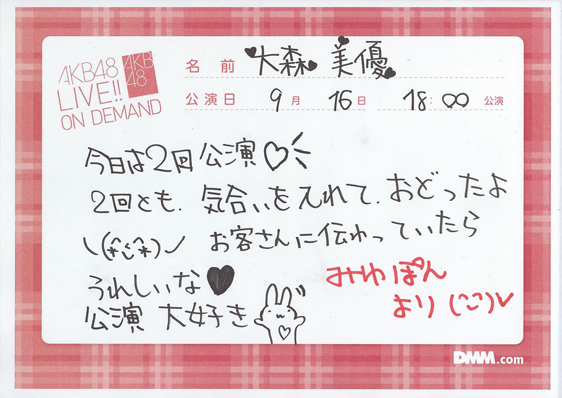 AKB48
LIVE!!
ON DEMAND
AKB
48
名前 大森 美優
公演日 9月 16日 18:00 公演
今日は2回公演♡
2回とも、気合いを入れて、おどったよ
\(*^ω^*)ノ お客さんに伝わっていたら
うれしいな♥
公演 大好き
みゆぽん
より (^^)
DMM.com